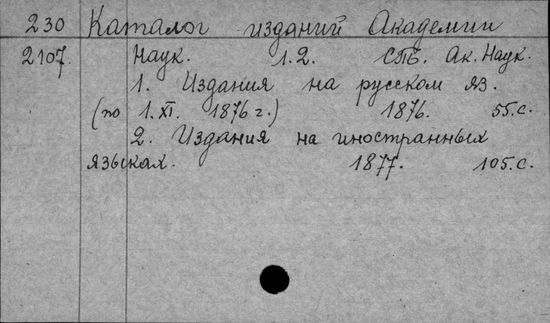 230 Каталог изданий Академии
2107. Наук. 1.2. СПБ. Ак. Наук.
1. Издания на русском яз.
(по 1. XI. 1876 г.) 1876. 55.с.
2. Издания на иностранных
языках. 1877. 105.с.